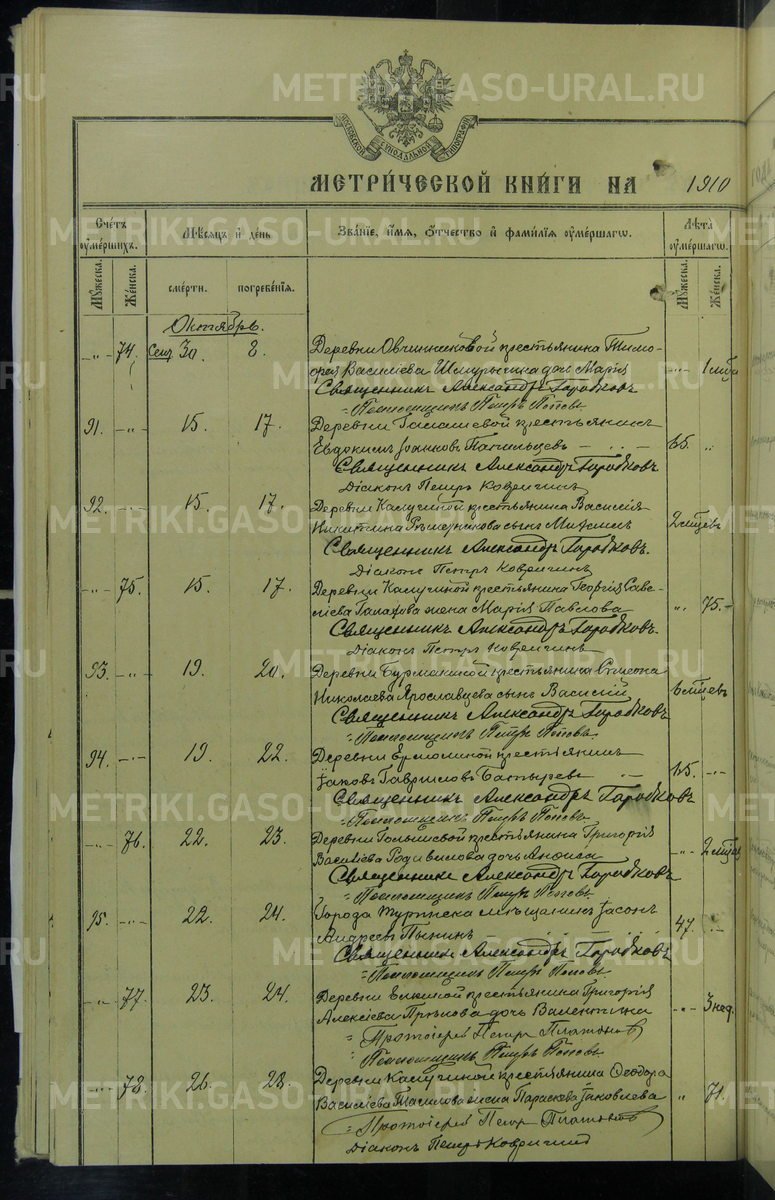 METRIKI.GASO-URAL.RU
МОСКОВСКОЙ СѴНОДАЛЬНОЙ ТИПОГРАФІИ
МЕТРИЧЕСКОЙ КНИГИ НА 1910
Счетъ умершихъ. Мѣсяцъ и день Званіе, имя, отчество и фамилія умершаго. Лѣта умершаго.
Мужеска. Женска. смерти. погребенія. Мужеска. Женска.
Октябрь.
-„- 74. Сен. 30. 8. Деревни Овчинниковой крестьянина Тимо-
ѳея Василіева дочь Марія -„- 1 мѣс
Священникъ Александръ Городковъ
Псаломщикъ Петръ Поповъ
91. -„- 15. 17. Деревни крестьянинъ
Евдокимъ Іоанновъ 65. „
Священникъ Александръ Городковъ
Діаконъ Петръ Ковригинъ
92. -„- 15. 17. Деревни Калугиной крестьянина Василія
Никитина сынъ 2 мѣсцевъ
Священникъ Александръ Городковъ.
Діаконъ Петръ Ковригинъ
-„- 75. 15. 17. Деревни Калугиной крестьянина Георгія Саве-
ліева жена Марія Павлова „ 75. -
Священникъ Александръ Городковъ.
Діаконъ Петръ Ковригинъ
93. -„- 19. 20. Деревни Бурмакиной крестьянина Симеона
Николаева Ярославцева сынъ Василій 6 мѣсцевъ
Священникъ Александръ Городковъ
Псаломщикъ Петръ Поповъ
94. -„- 19. 22. Деревни Ермолиной крестьянинъ
Іаковъ Гавриловъ 65. -„-
Священникъ Александръ Городковъ
Псаломщикъ Петръ Поповъ
-„- 76. 22. 23. Деревни крестьянина Григорія
Василіева Родивилова дочь Анѳиса -„- 2 мѣсца
Священникъ Александръ Городковъ
Псаломщикъ Петръ Поповъ
95. -„- 22. 24. Города Туринска мѣщанинъ Іасонъ
Андреевъ 47. -„-
Священникъ Александръ Городковъ
Псаломщикъ Петръ Поповъ.
-„- 77. 23. 24. Деревни крестьянина Григорія
Алексіева дочь Валентина -„- 3 нед.
Протоіерей Петръ Платоновъ
Псаломщикъ Петръ Поповъ
-„- 78. 26. 28. Деревни Калугиной крестьянина Ѳеодора
Василіева жена Параскева Іаковлева „ 71.
Протоіерей Петръ Платоновъ
Діаконъ Петръ Ковригинъ